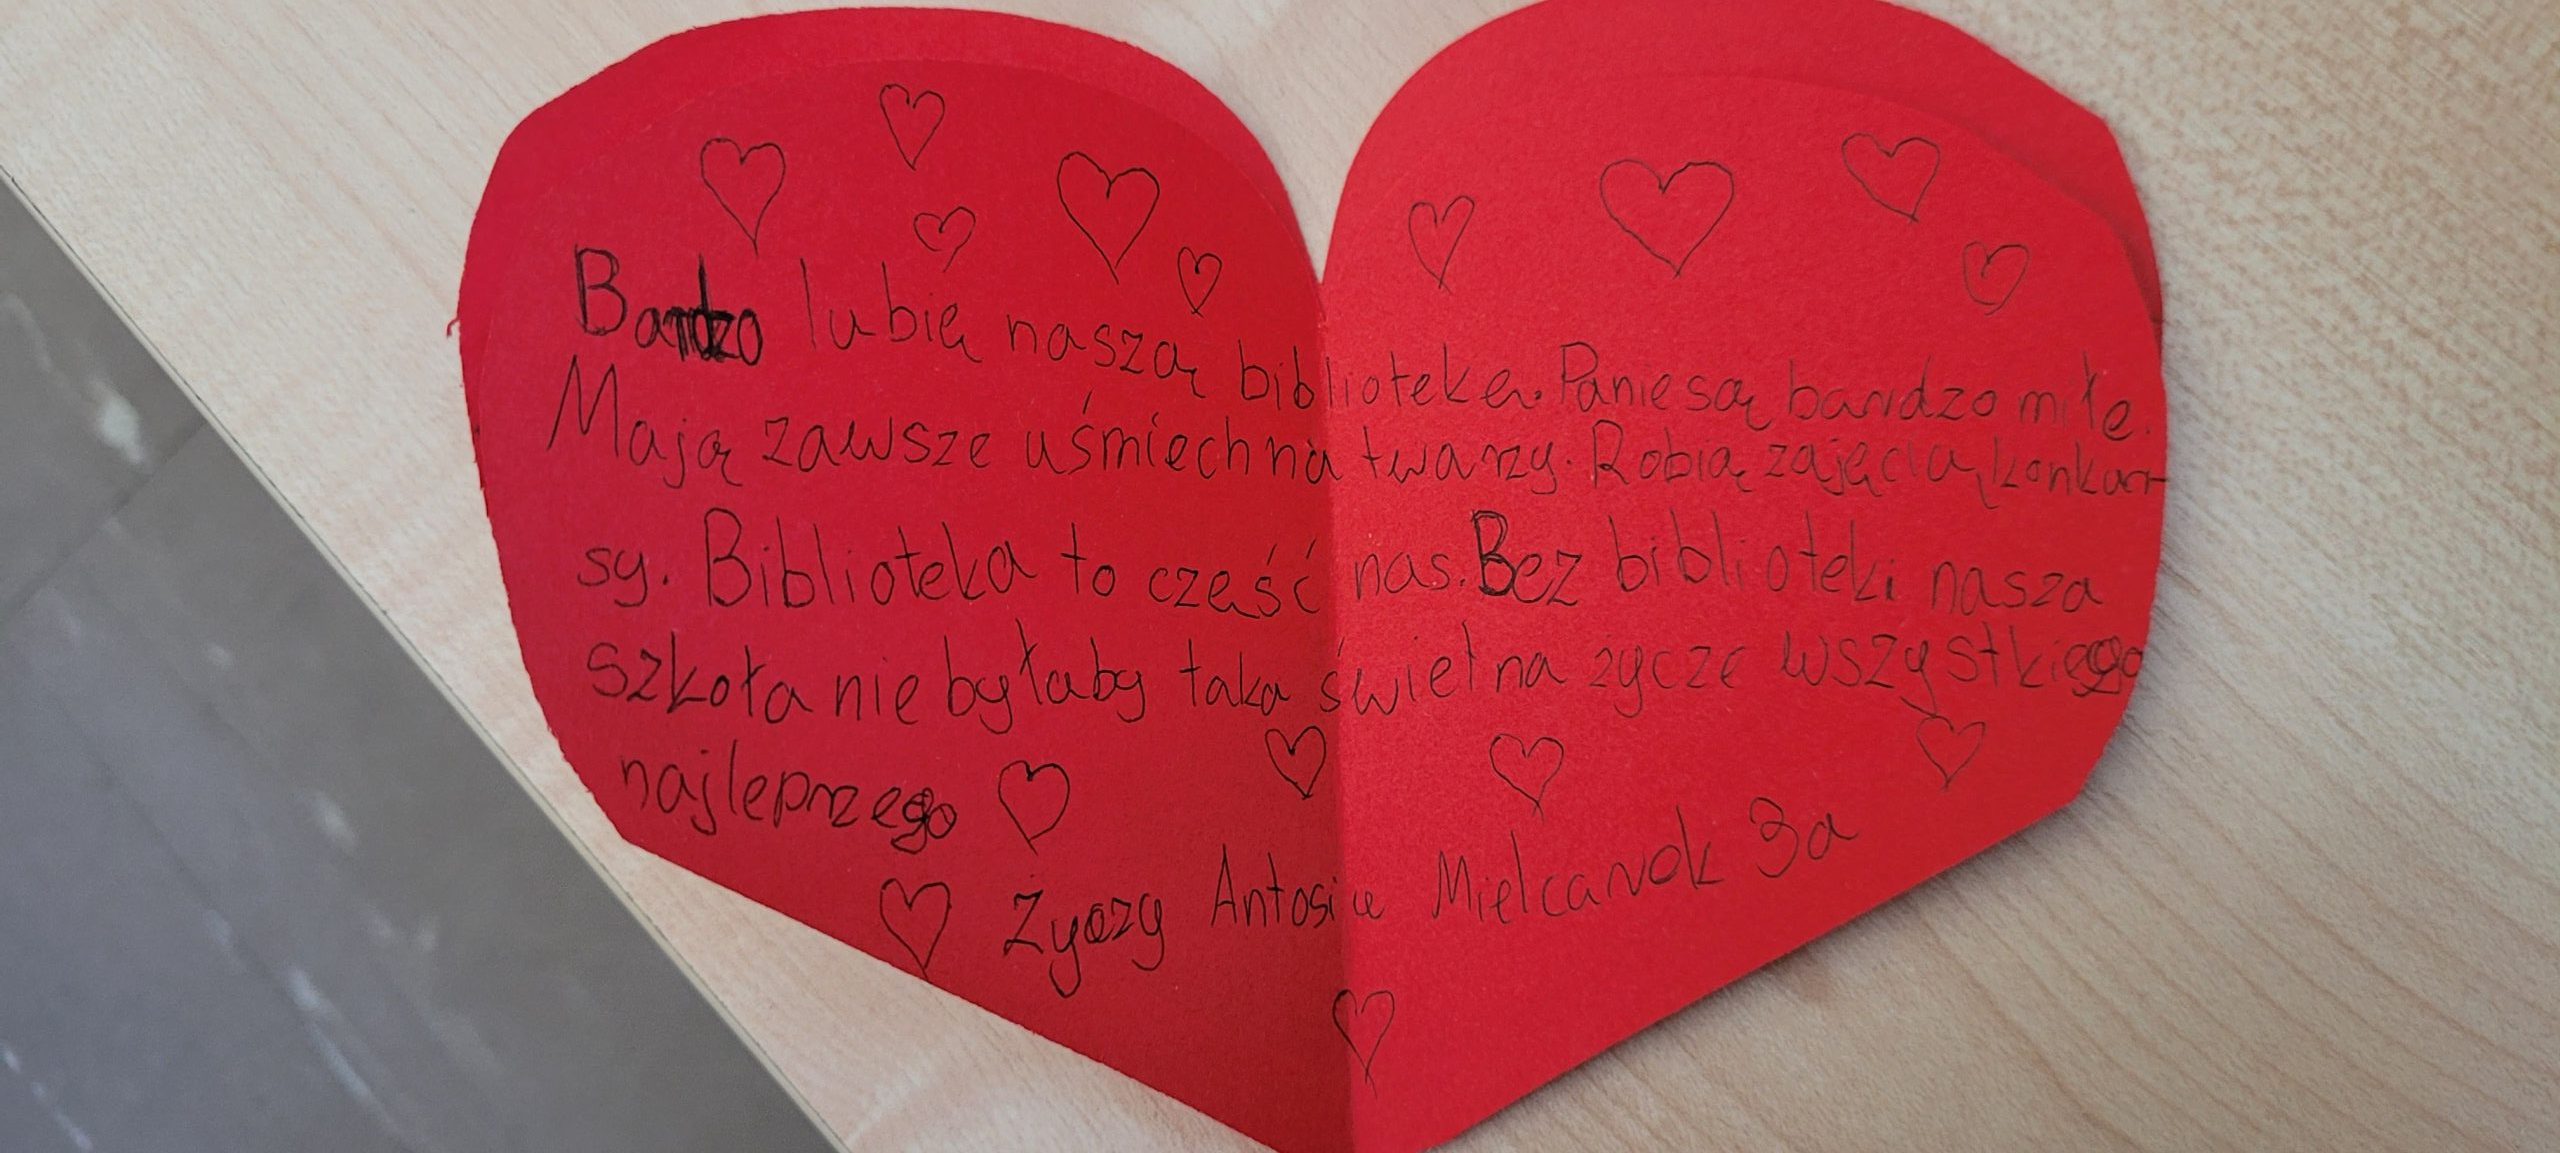 Bardzo lubię naszą bibliotekę. Panie są bardzo miłe.
Mają zawsze uśmiech na twarzy. Robią zajęcia, konkur-
sy. Biblioteka to cześć nas. Bez biblioteki nasza
szkoła nie byłaby taka świetna życze wszystkiego
najleprzego
Życzy Antosia Mielcarek 3a